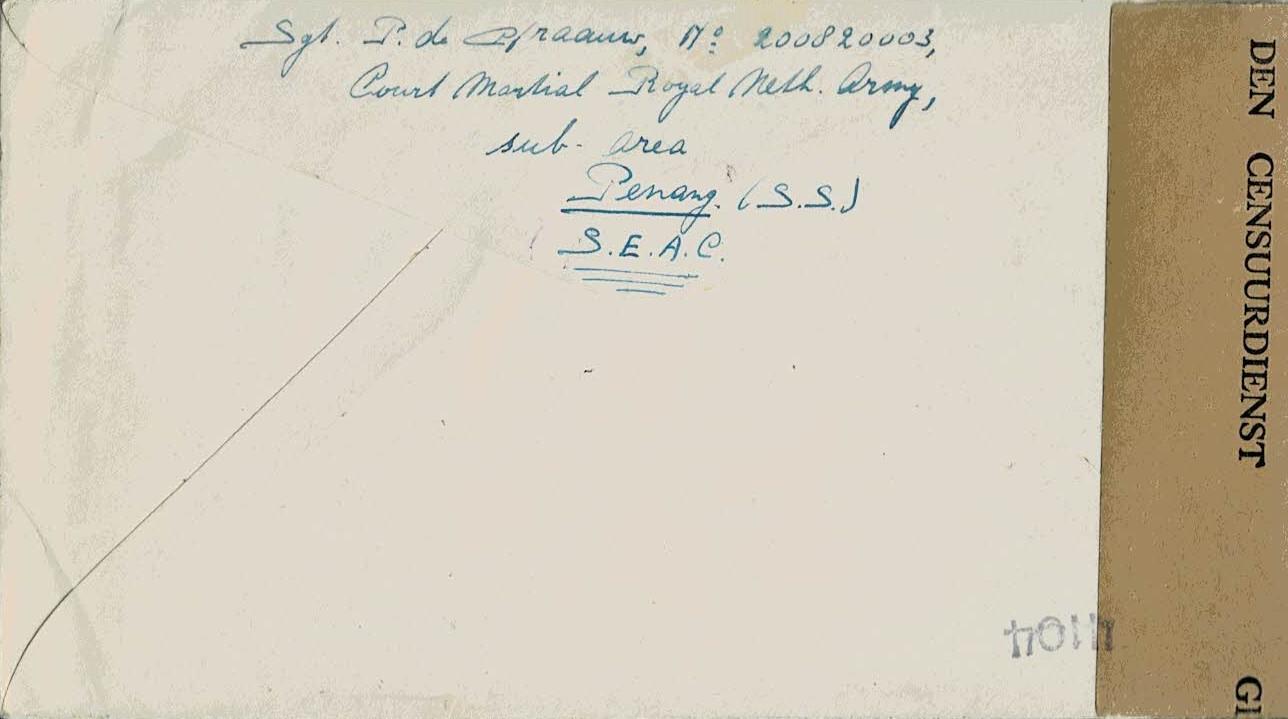 Sgt. P. de Graauw, No 200820003,
Court Martial Royal Neth. Army,
sub-area
Penang. (S.S.)
S.E.A.C.
DEN CENSUURDIENST
GI